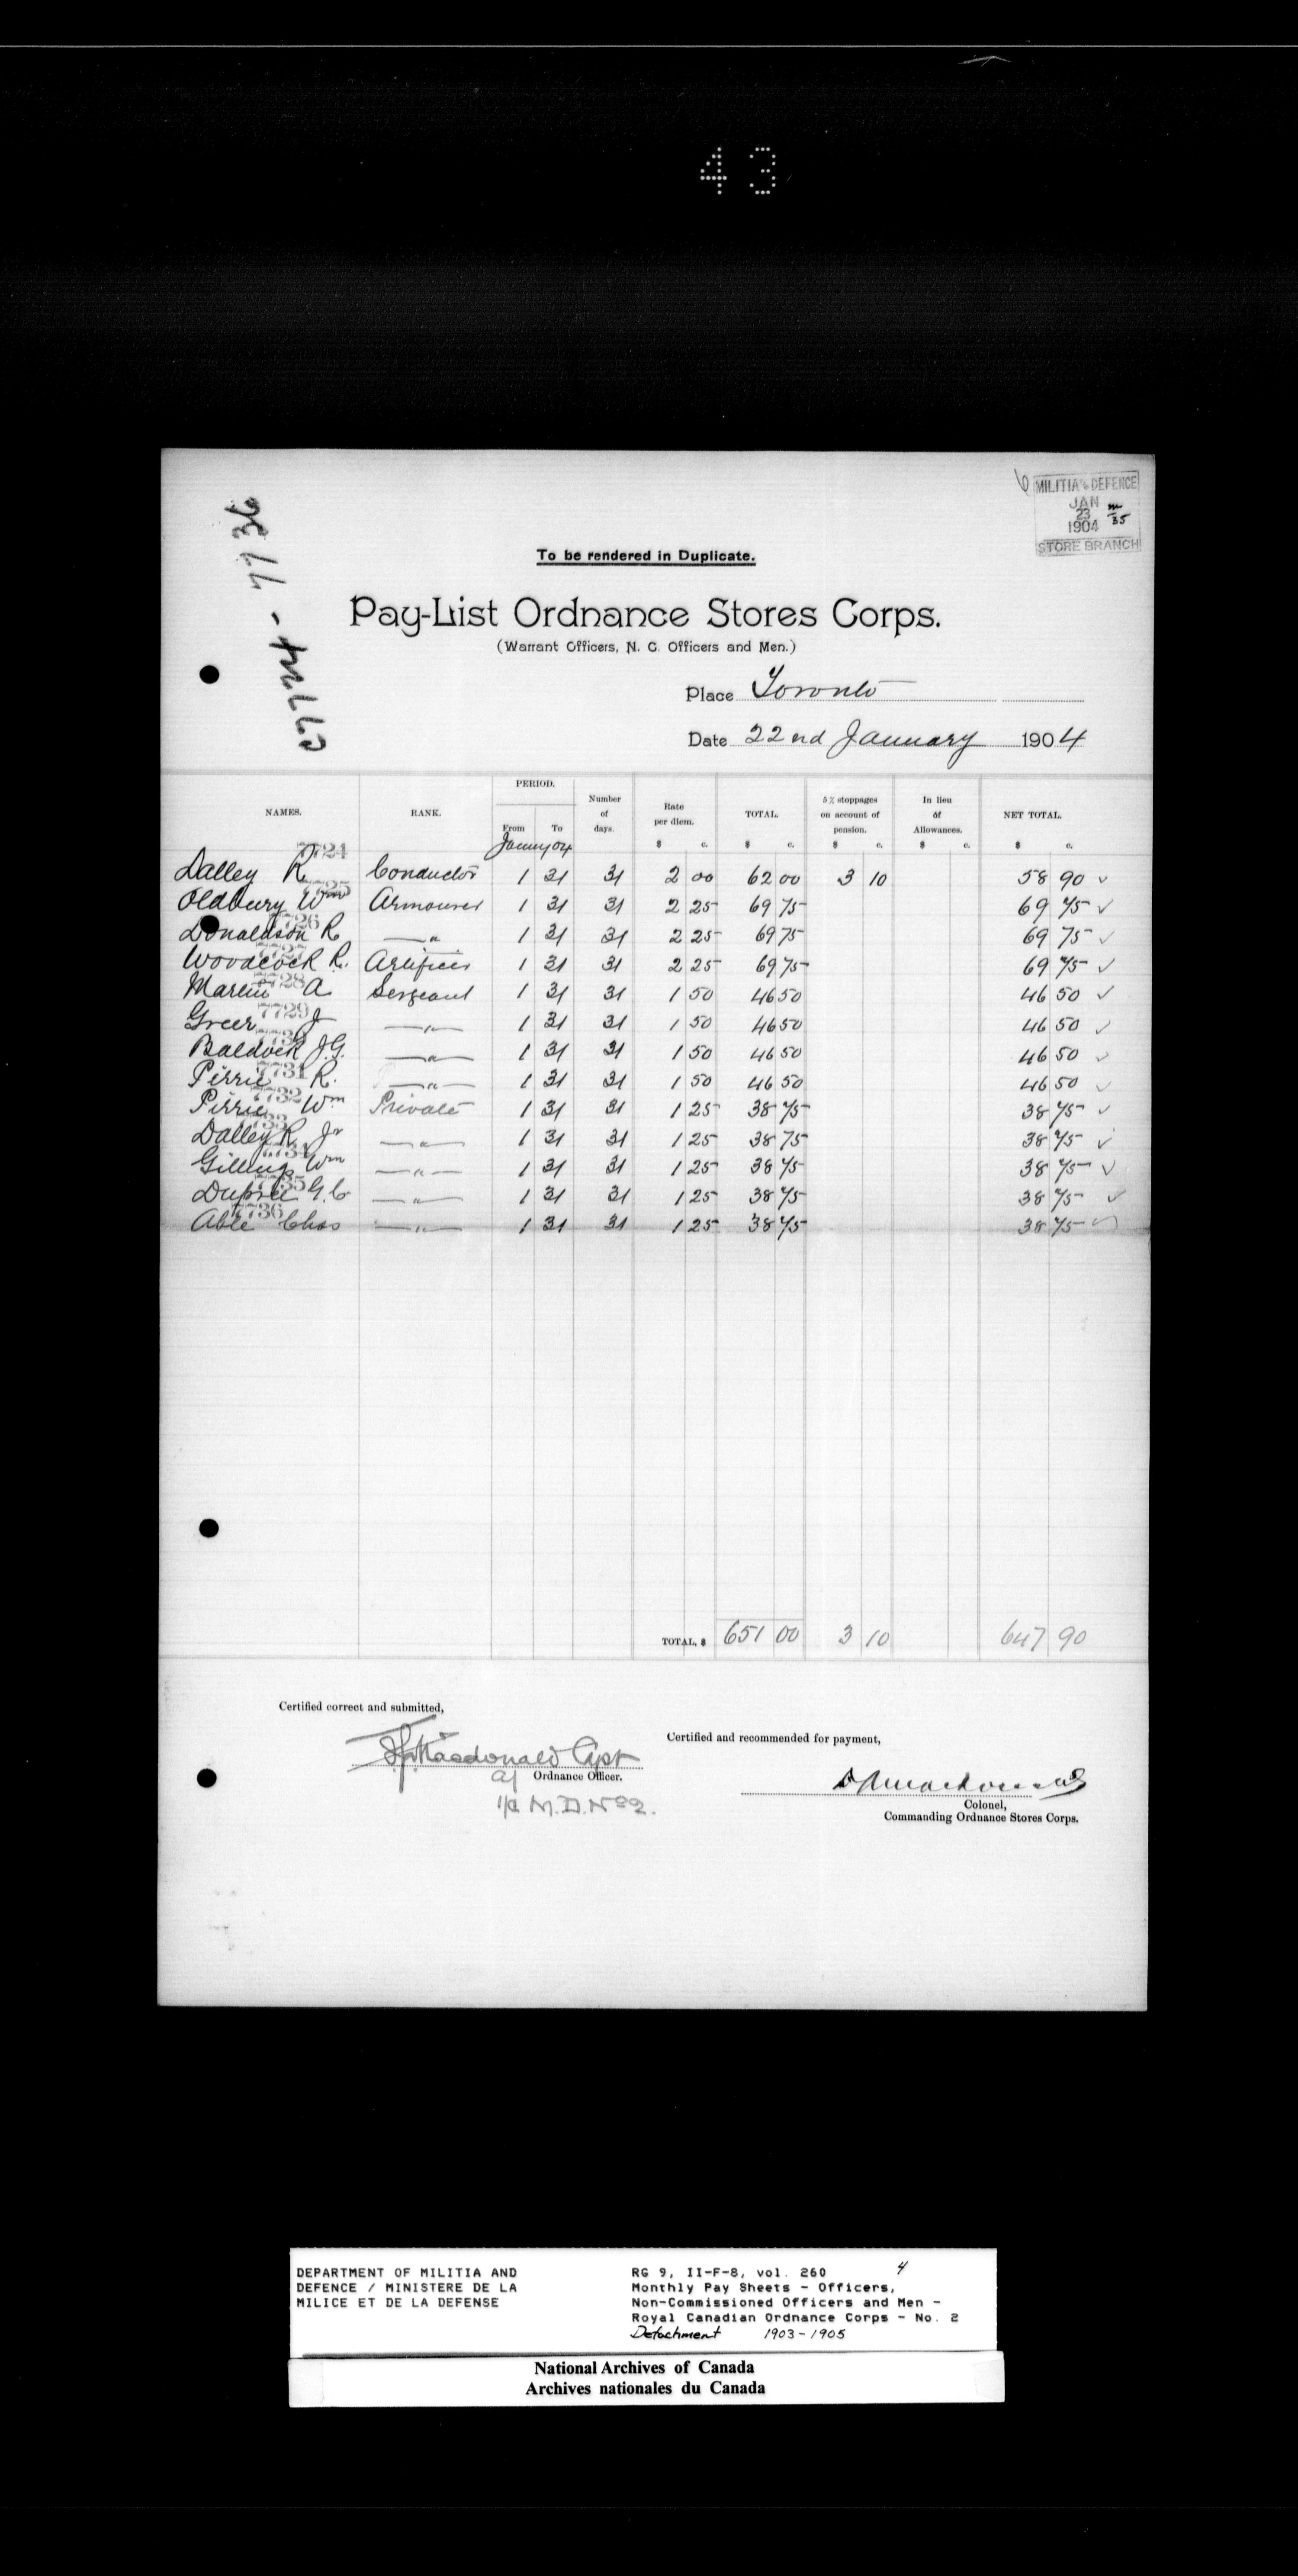 43
6
MILITIA & DEFENCE
JAN
23
1904
35
STORE BRANCH
C7724 - 7736
To be rendered in Duplicate.
Pay-List Ordnance Stores Corps.
(Warrant Officers, N. C. Officers and Men.)
Place Toronto
Date 22nd January 1904
NAMES. RANK. PERIOD. From To Number of days. Rate per diem. $ c. TOTAL. $ c. 5% stoppages on account of pension. $ c. In lieu of Allowances. $ c. NET TOTAL. $ c.
January 04
7724
Dalley R Conductor 1 31 31 2 00 62 00 3 10 58 90 ✓
7725
Oldbury Wm Armourer 1 31 31 2 25 69 75 69 75 ✓
7726
Donaldson R —"— 1 31 31 2 25 69 75 69 75 ✓
7727
Woodcock R. Artificer 1 31 31 2 25 69 75 69 75 ✓
7728
Martin A Sergeant 1 31 31 1 50 46 50 46 50 ✓
7729
Greer J —"— 1 31 31 1 50 46 50 46 50 ✓
7730
Baldock J.G. —"— 1 31 31 1 50 46 50 46 50 ✓
7731
Pirrie R. —"— 1 31 31 1 50 46 50 46 50 ✓
7732
Pirrie Wm Private 1 31 31 1 25 38 75 38 75 ✓
7733
Dalley R. Jr —"— 1 31 31 1 25 38 75 38 75 ✓
7734
Wm —"— 1 31 31 1 25 38 75 38 75 ✓
7735
G.C —"— 1 31 31 1 25 38 75 38 75 ✓
7736
Able Chas —"— 1 31 31 1 25 38 75 38 75 ✓
TOTAL, $ 651 00 3 10 647 90
Certified correct and submitted,
Macdonald Capt
a/ Ordnance Officer.
i/c M.D. No 2.
Certified and recommended for payment,
Macdonald
Colonel,
Commanding Ordnance Stores Corps.
DEPARTMENT OF MILITIA AND
DEFENCE / MINISTERE DE LA
MILICE ET DE LA DEFENSE
RG 9, II-F-8, vol. 260 4
Monthly Pay Sheets - Officers,
Non-Commissioned Officers and Men -
Royal Canadian Ordnance Corps - No. 2
Detachment 1903-1905
National Archives of Canada
Archives nationales du Canada